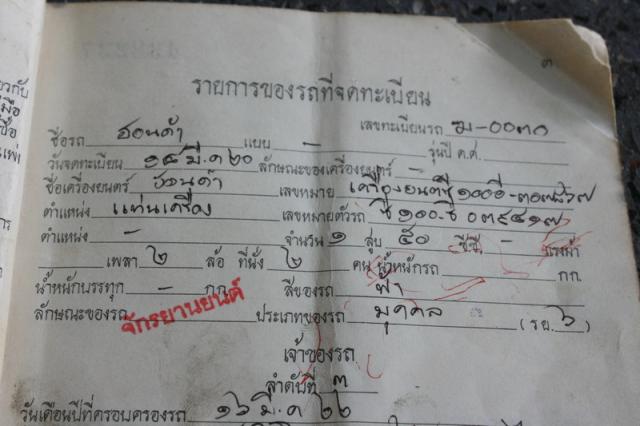 ๓
รายการของรถที่จดทะเบียน
เลขทะเบียนรถ ฆ-๐๐๓๐
ชื่อรถ ฮอนด้า แบบ - รุ่นปี ค.ศ.
วันจดทะเบียน ๑๔ มี.ค ๒๐ ลักษณะของเครื่องยนต์ -
ชื่อเครื่องยนต์ ฮอนด้า เลขหมาย เครื่องยนต์ซี ๑๐๐อี-
ตำแหน่ง แท่นเครื่อง เลขหมายตัวรถ ซี ๑๐๐-ซี ๐๓๙๔๑๗
ตำแหน่ง - จำนวน ๑ สูบ ๕๐ ซีซี - แรงม้า
เพลา ๒ ล้อ ที่นั่ง ๒ คน น้ำหนักรถ กก.
น้ำหนักบรรทุก - กก. สีของรถ ฟ้า
ลักษณะของรถ จักรยานยนต์ ประเภทของรถ บุคคล (รย. ๖)
เจ้าของรถ
ลำดับที่ ๓
วันเดือนปีที่ครอบครองรถ ๑๖ มี.ค ๒๒